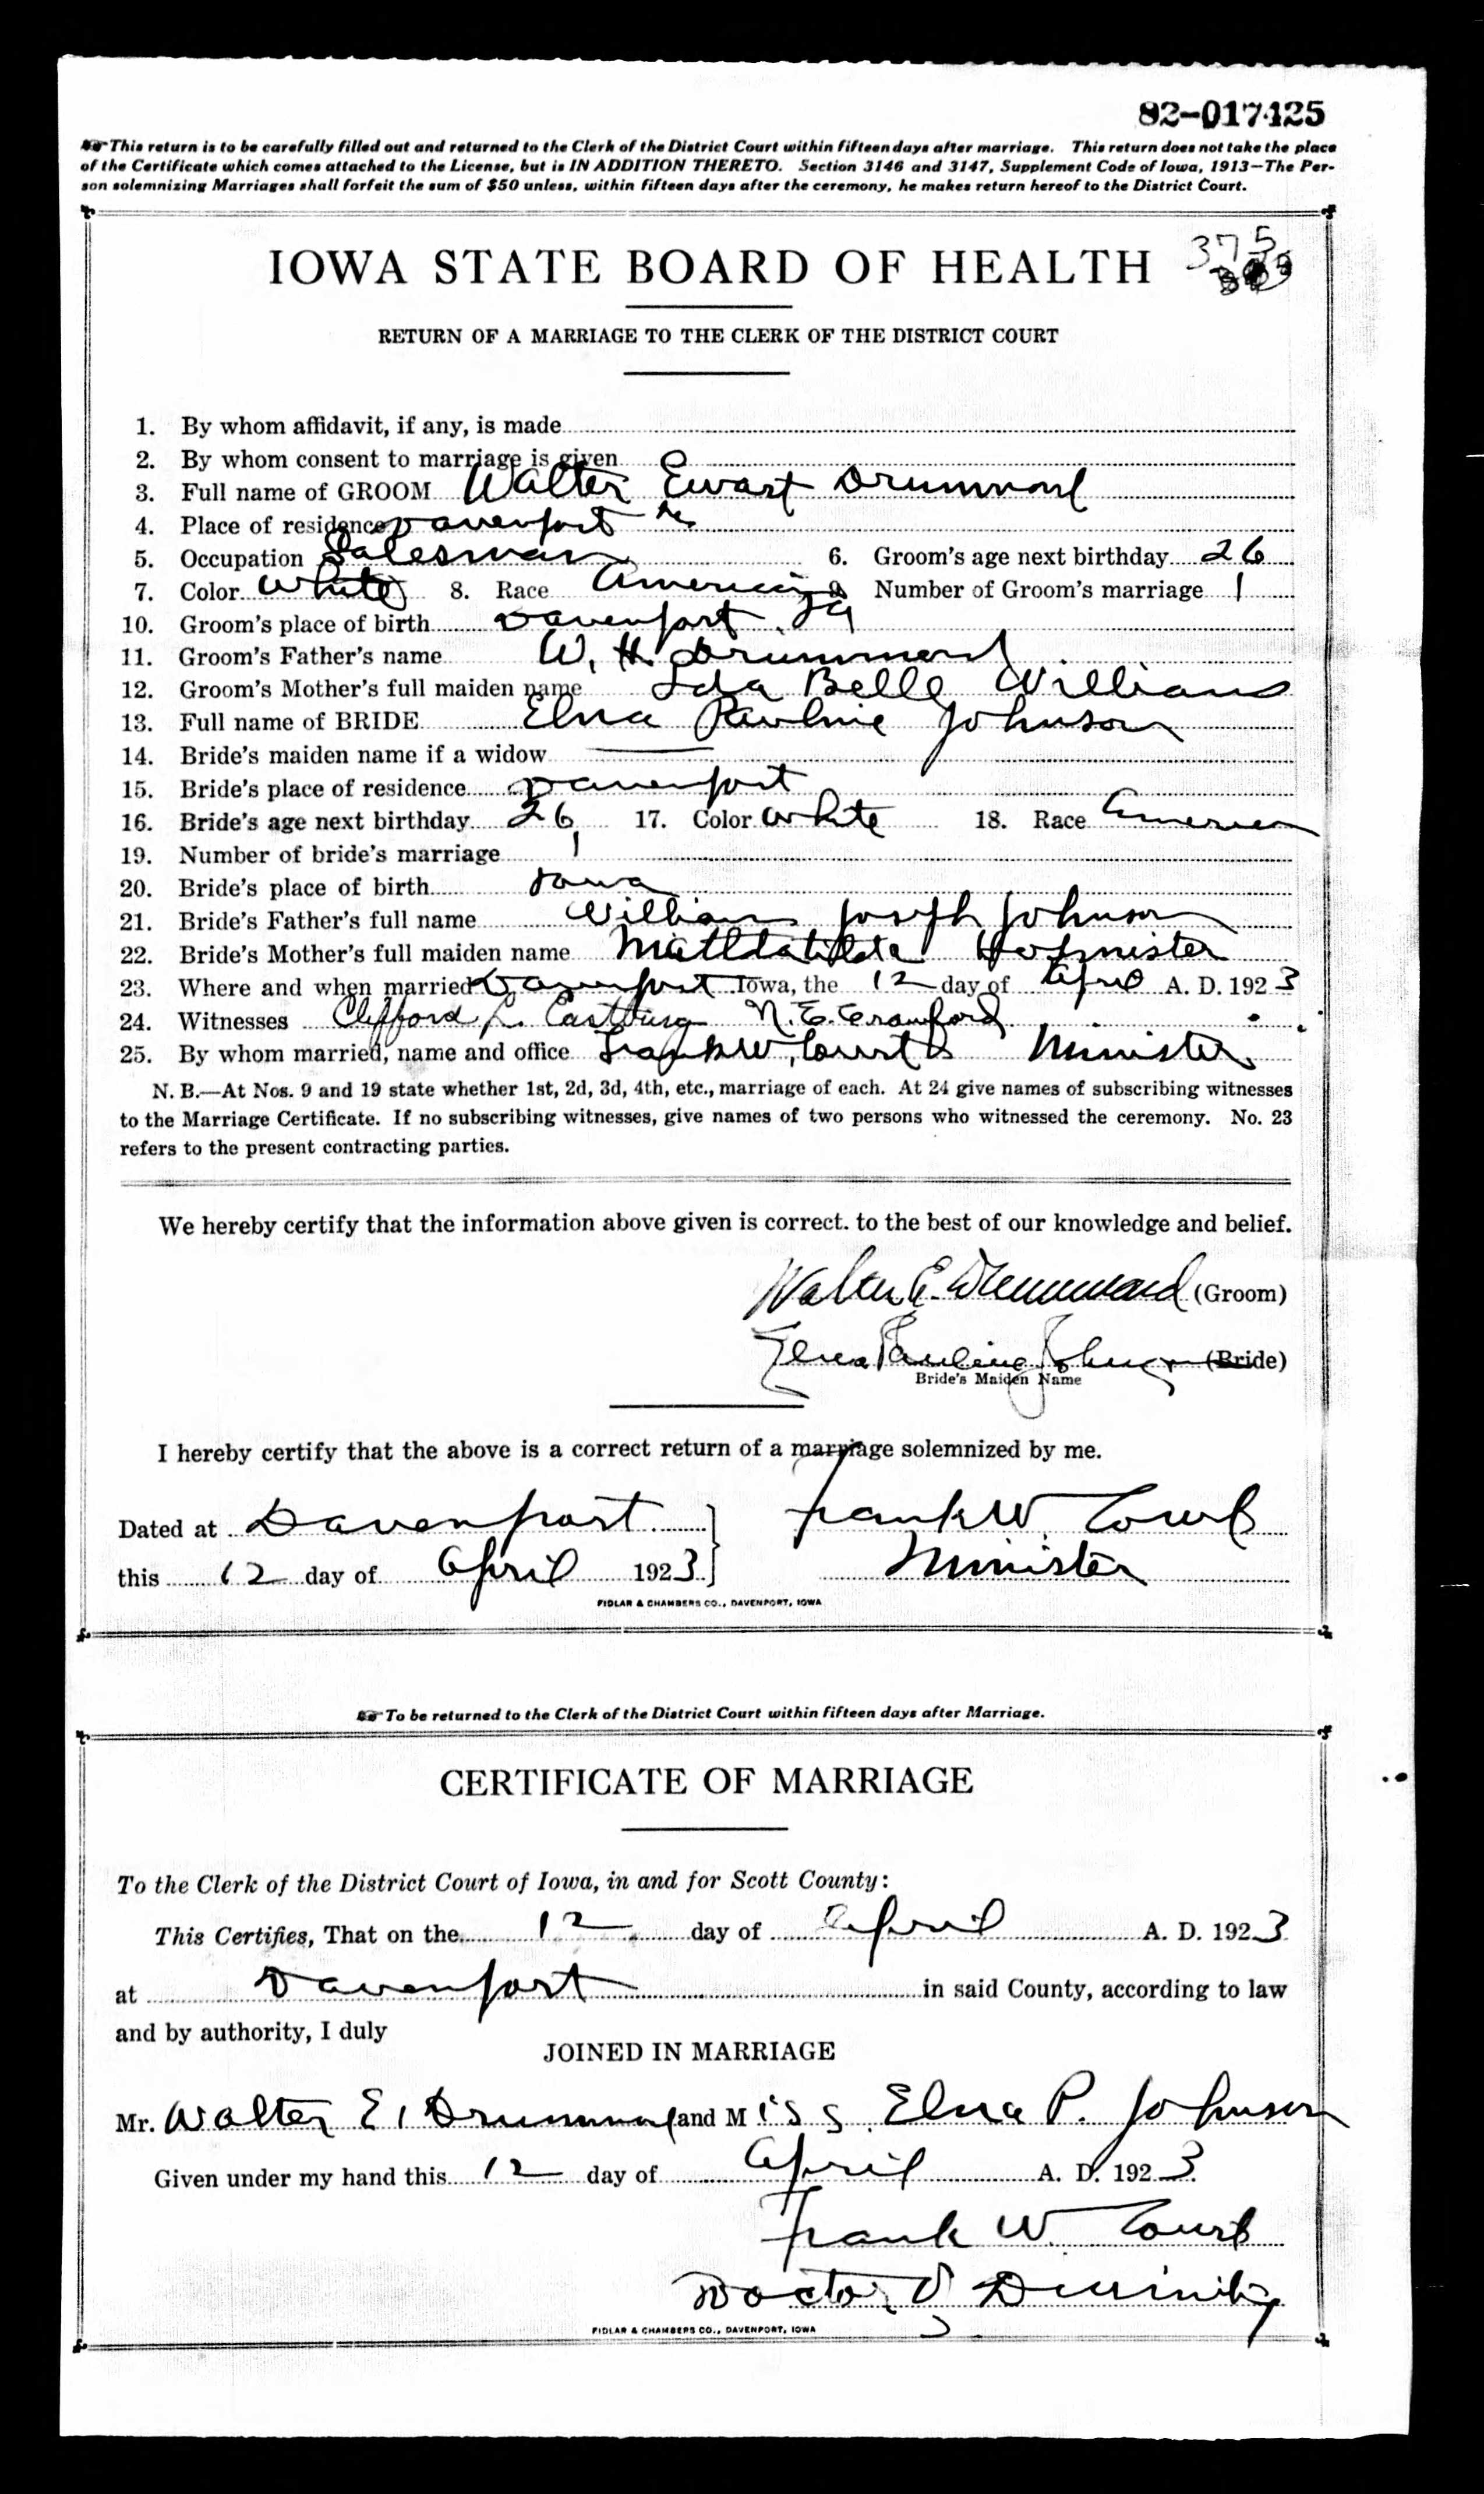 82-017425
This return is to be carefully filled out and returned to the Clerk of the District Court within fifteen days after marriage. This return does not take the place
of the Certificate which comes attached to the License, but is IN ADDITION THERETO. Section 3146 and 3147, Supplement Code of Iowa, 1913—The Per-
son solemnizing Marriages shall forfeit the sum of $50 unless, within fifteen days after the ceremony, he makes return hereof to the District Court.
IOWA STATE BOARD OF HEALTH 375
RETURN OF A MARRIAGE TO THE CLERK OF THE DISTRICT COURT
1. By whom affidavit, if any, is made
2. By whom consent to marriage is given
3. Full name of GROOM Walter Ewart Drummond
4. Place of residence Davenport Ia
5. Occupation Salesman 6. Groom's age next birthday 26
7. Color White 8. Race American 9. Number of Groom's marriage 1
10. Groom's place of birth Davenport, Ia
11. Groom's Father's name W. H. Drummond
12. Groom's Mother's full maiden name Ida Belle Williams
13. Full name of BRIDE Elna Pauline Johnson
14. Bride's maiden name if a widow
15. Bride's place of residence Davenport
16. Bride's age next birthday 26 17. Color White 18. Race American
19. Number of bride's marriage 1
20. Bride's place of birth Iowa
21. Bride's Father's full name William Joseph Johnson
22. Bride's Mother's full maiden name Hofmister
23. Where and when married Davenport Iowa, the 12 day of April A. D. 1923
24. Witnesses Clifford L. Eastburg N. E. Crawford
25. By whom married, name and office Frank W. Court Minister
N. B.—At Nos. 9 and 19 state whether 1st, 2d, 3d, 4th, etc., marriage of each. At 24 give names of subscribing witnesses
to the Marriage Certificate. If no subscribing witnesses, give names of two persons who witnessed the ceremony. No. 23
refers to the present contracting parties.
We hereby certify that the information above given is correct. to the best of our knowledge and belief.
Walter E. Drummond (Groom)
Elna Pauline Johnson (Bride)
Bride's Maiden Name
I hereby certify that the above is a correct return of a marriage solemnized by me.
Dated at Davenport Frank W. Court
this 12 day of April 1923 Minister
FIDLAR & CHAMBERS CO., DAVENPORT, IOWA
To be returned to the Clerk of the District Court within fifteen days after Marriage.
CERTIFICATE OF MARRIAGE
To the Clerk of the District Court of Iowa, in and for Scott County:
This Certifies, That on the 12 day of April A. D. 1923
at Davenport in said County, according to law
and by authority, I duly
JOINED IN MARRIAGE
Mr. Walter E. Drummond and Miss Elna P. Johnson
Given under my hand this 12 day of April A. D. 1923
Frank W. Court
Doctor of Divinity
FIDLAR & CHAMBERS CO., DAVENPORT, IOWA